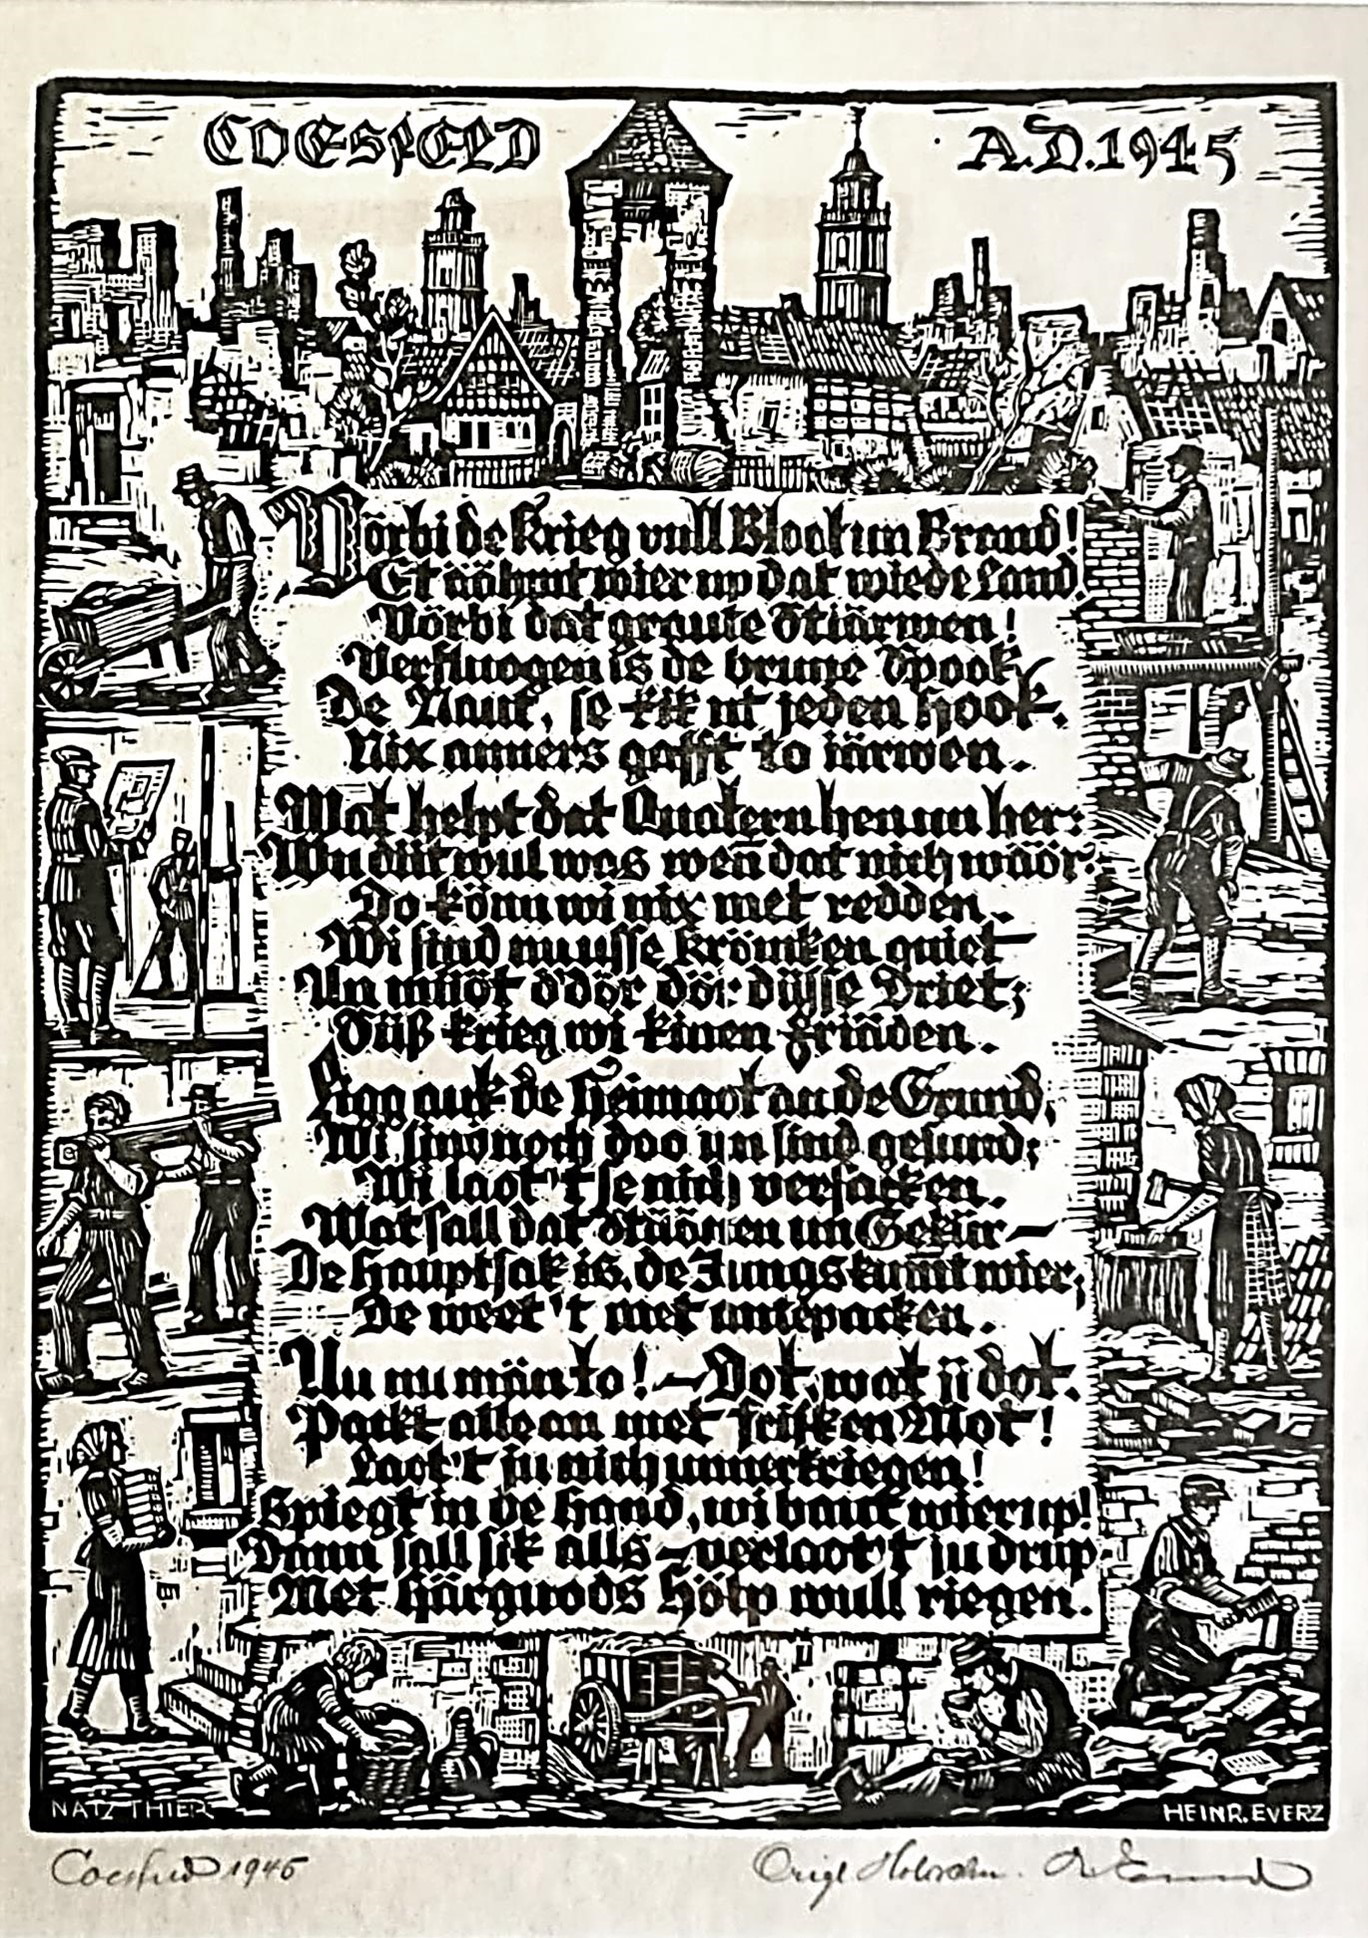 COESFELD
A.D. 1945
Vörbi de Krieg vull Bloot un Brand!
Et näamt wier up dat wiede Land.
Vörbi dat graute Stiärwen!
Verfluogen is de brune Spook,
De Naut, se kik ut jeden Hook.
Nix anners gafft to iärwen.
Wat helpt dat Quatern hen un her:
Wu düt wul was wenn dat nich wäör:
Do könn wi nix met redden.
Wi sind nu usse Krömken quiet
Un müöt d'dör dör düsse Driet;
Süß krieg wi kinen Frinden.
Ligg auk de Heimaot an de Grund,
Wi sind noch doo un sind gesund;
Wi laot't se nich versacken.
Wat sall dat un —
De Hauptsak is, de Jungs kummt wier,
De weet't met antepacken.
Nu nu män to! — Dot, wat ji dot.
Packt alle an met frisken Mot!
Laot't ju nich unnerkriegen!
Spiegt in de Hand, wi baut wier up!
Dann sall sik alls — verlaot't ju drup —
Met Härguods Hölp wull riegen.
NATZ THIER
HEINR. EVERZ
Coesfeld 1946
Origl Holzschn.